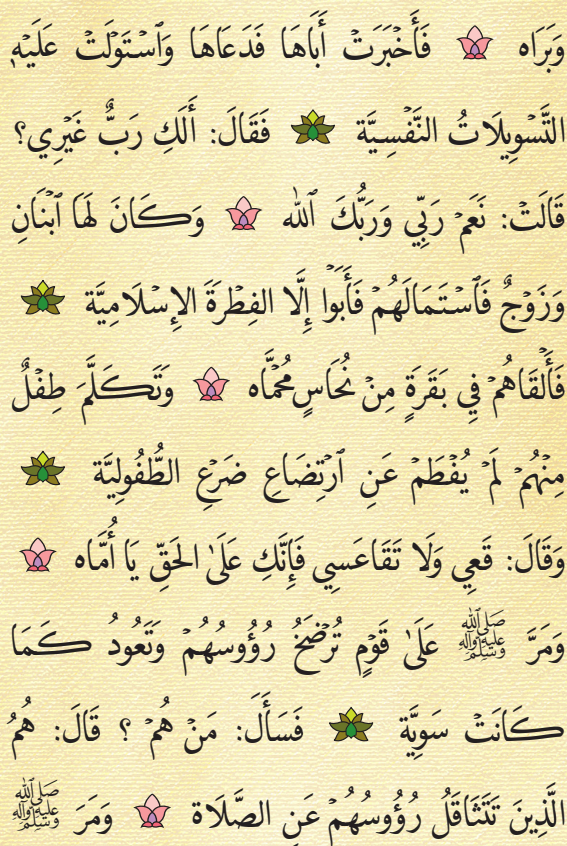 وَبَرَاه فَأَخْبَرَتْ أَبَاهَا فَدَعَاهَا وَٱسْتَوْلَتْ عَلَيْهِ
التَّسْوِيلَاتُ النَّفْسِيَّة فَقَالَ: أَلَكِ رَبٌّ غَيْرِي؟
قَالَتْ: نَعَمْ رَبِّي وَرَبُّكَ ٱلله وَكَانَ لَهَا ٱبْنَانِ
وَزَوْجٌ فَٱسْتَمَالَهُمْ فَأَبَوْا إِلَّا الفِطْرَةَ الإِسْلَامِيَّة
فَأَلْقَاهُمْ فِي بَقَرَةٍ مِنْ نُحَاسٍ مُحْمَّاه وَتَكَلَّمَ طِفْلٌ
مِنْهُمْ لَمْ يُفْطَمْ عَنِ ٱرْتِضَاعِ ضَرْعِ الطُّفُولِيَّة
وَقَالَ: قَعِي وَلَا تَقَاعَسِي فَإِنَّكِ عَلَىٰ الحَقِّ يَا أُمَّاه
وَمَرَّ ﷺ عَلَىٰ قَوْمٍ تُرْضَخُ رُؤُوسُهُمْ وَتَعُودُ كَمَا
كَانَتْ سَوِيَّة فَسَأَلَ: مَنْ هُمْ ؟ قَالَ: هُمُ
الَّذِينَ تَتَثَاقَلُ رُؤُوسُهُمْ عَنِ الصَّلَاة وَمَرَ ﷺ